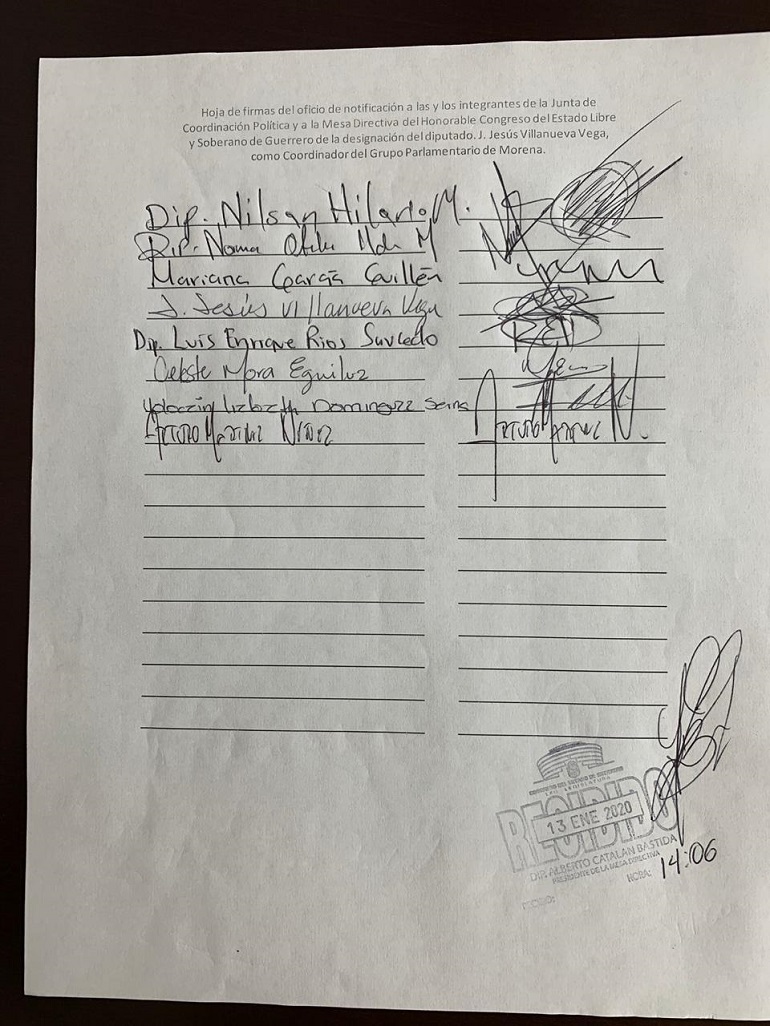 Hoja de firmas del oficio de notificación a las y los integrantes de la Junta de
Coordinación Política y a la Mesa Directiva del Honorable Congreso del Estado Libre
y Soberano de Guerrero de la designación del diputado. J. Jesús Villanueva Vega,
como Coordinador del Grupo Parlamentario de Morena.
Dip. Nilsan Hilario M.
Dip. Norma Otilia
Mariana García Guillén
J. Jesús Villanueva Vega
Dip. Luis Enrique Rios Saucedo
Celeste Mora Eguiluz
Yoloczin Lizbeth Dominguez Serna
Arturo Martínez Núñez
LXII LEGISLATURA
RECIBIDO
13 ENE 2020
DIP. ALBERTO CATALÁN BASTIDA
PRESIDENTE DE LA MESA DIRECTIVA
HORA: 14:06